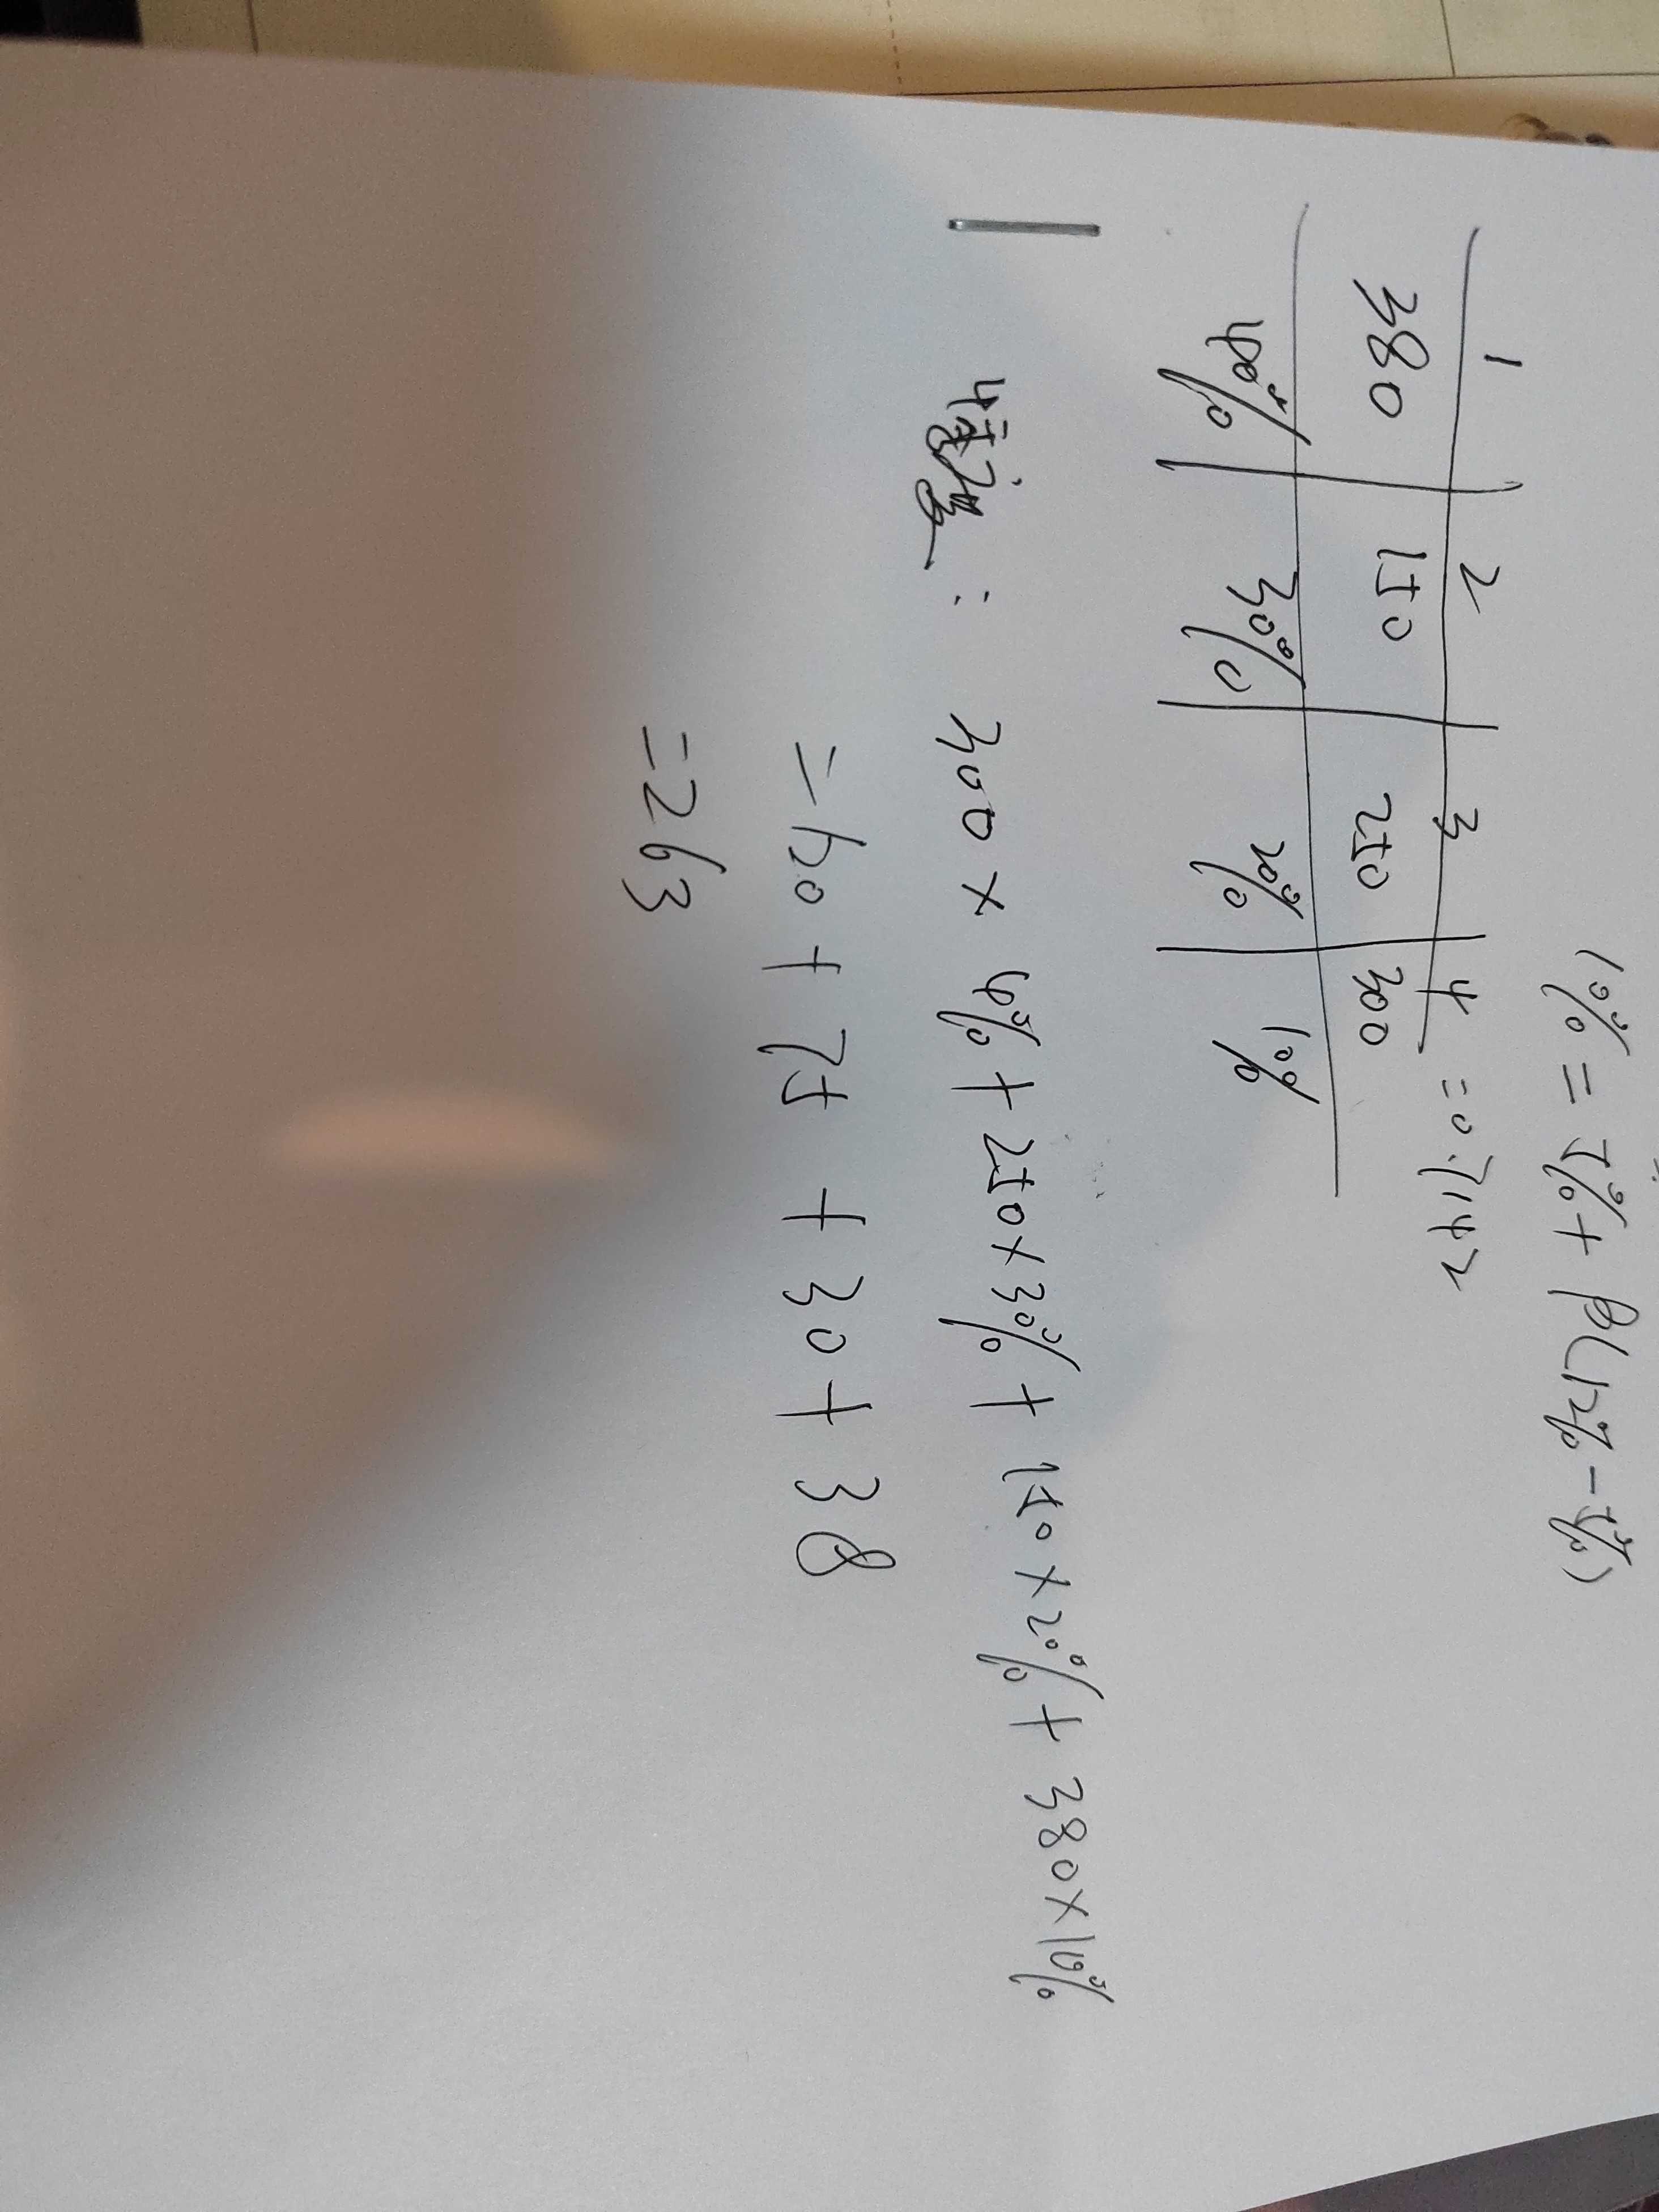 10% = 5% + β(12% - 5%)
= 0.7142
1 2 3 4
380 150 250 300
40% 30% 20% 10%
4 : 300 × 40% + 250 × 30% + 150 × 20% + 380 × 10%
= 120 + 75 + 30 + 38
= 263